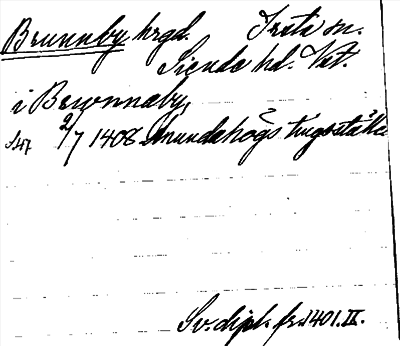 Brunnby hrgd. Irsta sn.
Siende hd. Vst.
i Brwnnaby
2/7 1408 Anundahögs tingställe
Sv. dipl. fr. 1401. II.